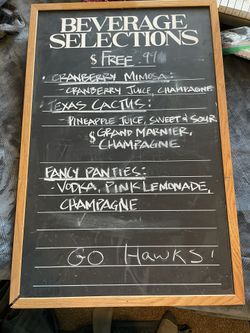 BEVERAGE
SELECTIONS
$ FREE .99
• CRANBERRY MIMOSA:
- CRANBERRY JUICE, CHAMPAGNE
TEXAS CACTUS:
- PINEAPPLE JUICE, SWEET & SOUR
$ GRAND MARNIER,
CHAMPAGNE
FANCY PANTIES:
- VODKA, PINK LEMONADE,
CHAMPAGNE
GO HAWKS!